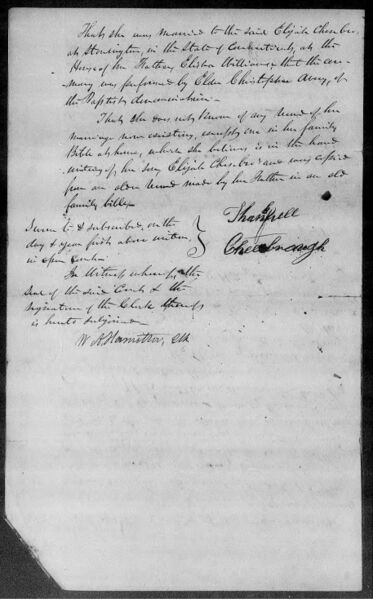 That she was married to the said Elijah Chesebro
at Stonington, in the State of Connecticut, at the
House of her Father Elisha Williams, that the cere-
mony was performed by Elder Christopher Avery, of
the Baptist denomination.
That she does not know of any record of her
marriage now existing, except one in her family
Bible at home, which she believes is in the hand
writing of her son Elijah Chesebro and was copied
from an older record made by her Father in an old
family bible.
Sworn to & subscribed, on the
day & year first above written
in open Court.
Thankfull
Cheesbrough
In Witness whereof, the
Seal of the said Court & the
signature of the Clerk thereof
is hereto subjoined
W. A. Clk